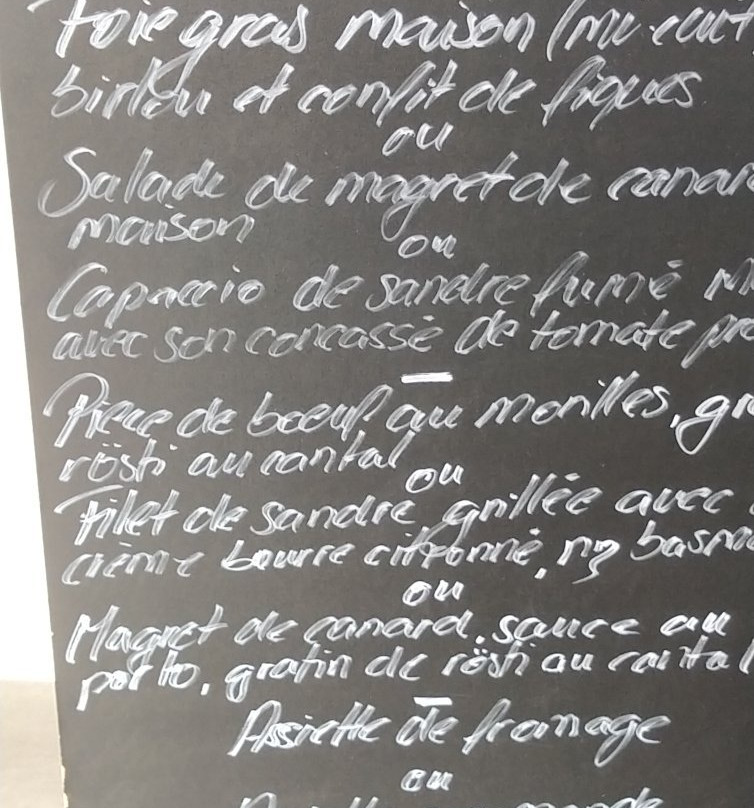 Foie gras maison (mi-cuit
et confit de figues
ou
Salade de magret de canar
maison
ou
Capaccio de sandre fumé
avec son concassé de tomate
Pièce de boeuf au morilles,
rösti au cantal
ou
Filet de sandre grillée avec
crème bourre citronné, riz basma
ou
Magret de canard, sauce au
porto, gratin de rösti au cantal
Assiette de fromage
ou